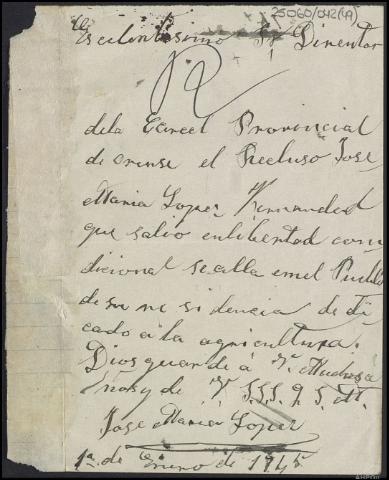 25060/042(1A)
Escelentesimo Sr Direntor
dela Carcel Provincial
de orense el Recluso Jose
Maria Lopez Fernandez
que salio enlibertad con
dicional sealla emel Pueblo
de su ne sidencia de di
cado a la agricultura.
Dios guarde á V. Muchosa
ños y de V. S.S.S. q. S. M.
Jose Maria Lopez
1ª. de Enero de 1945